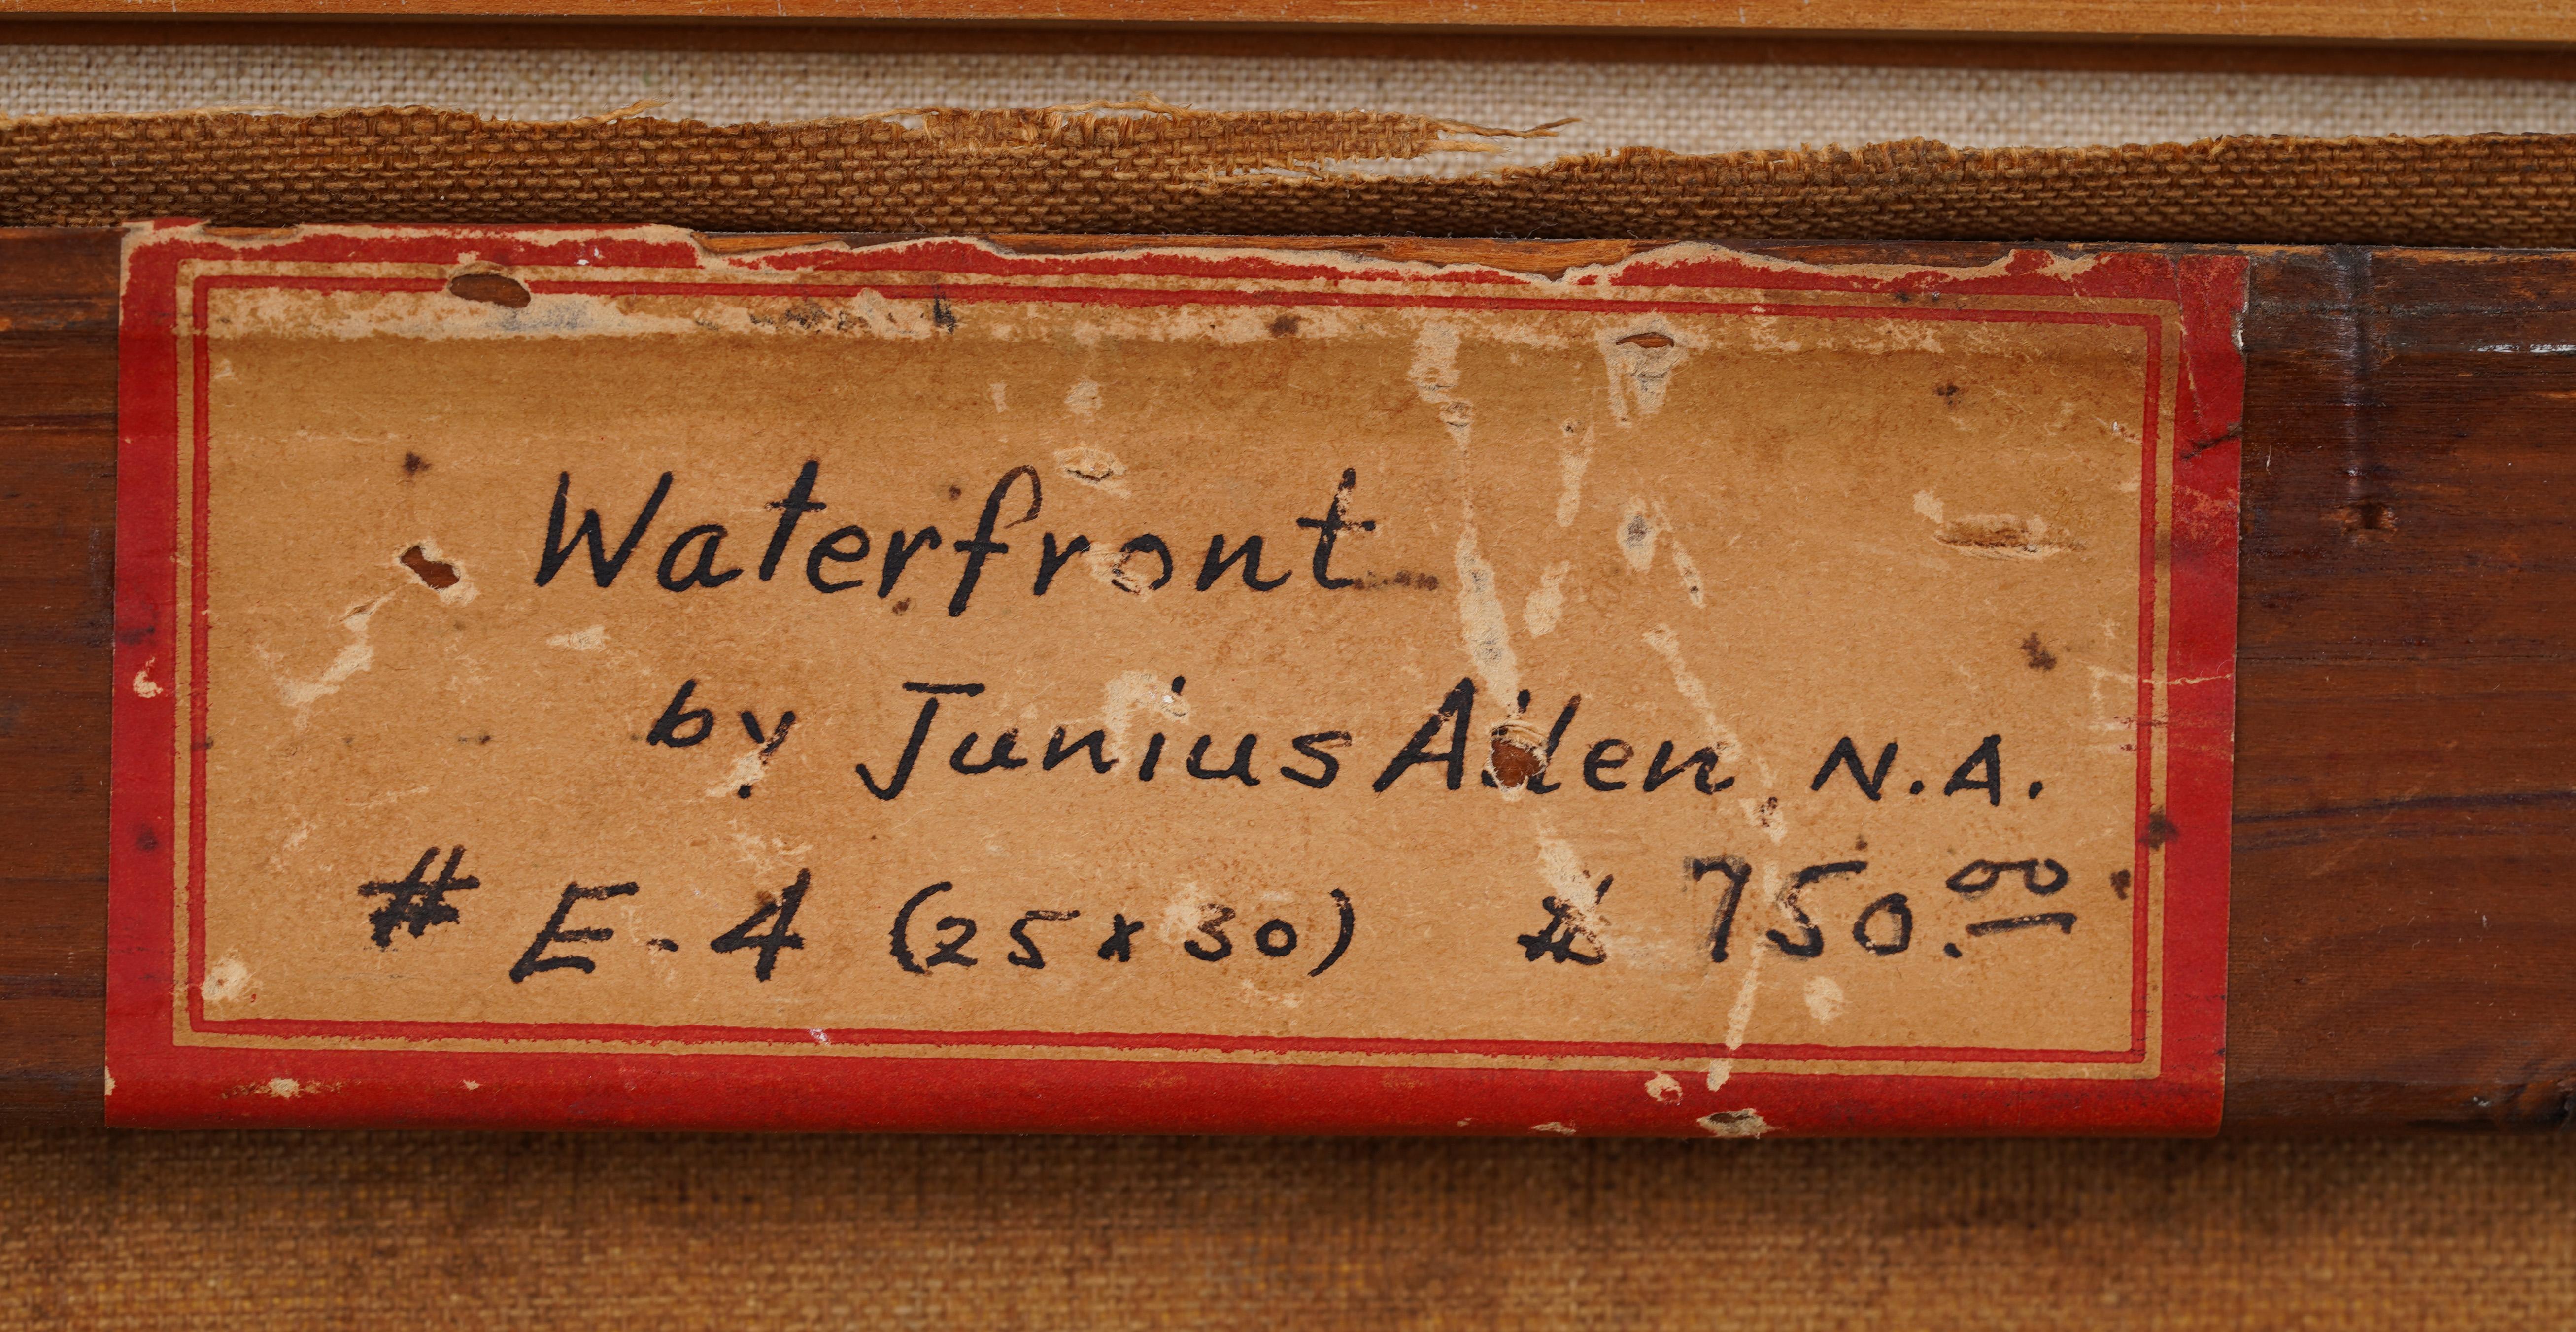 Waterfront
by Junius Allen, N.A.
# E-4 (25 x 30) $ 750.00